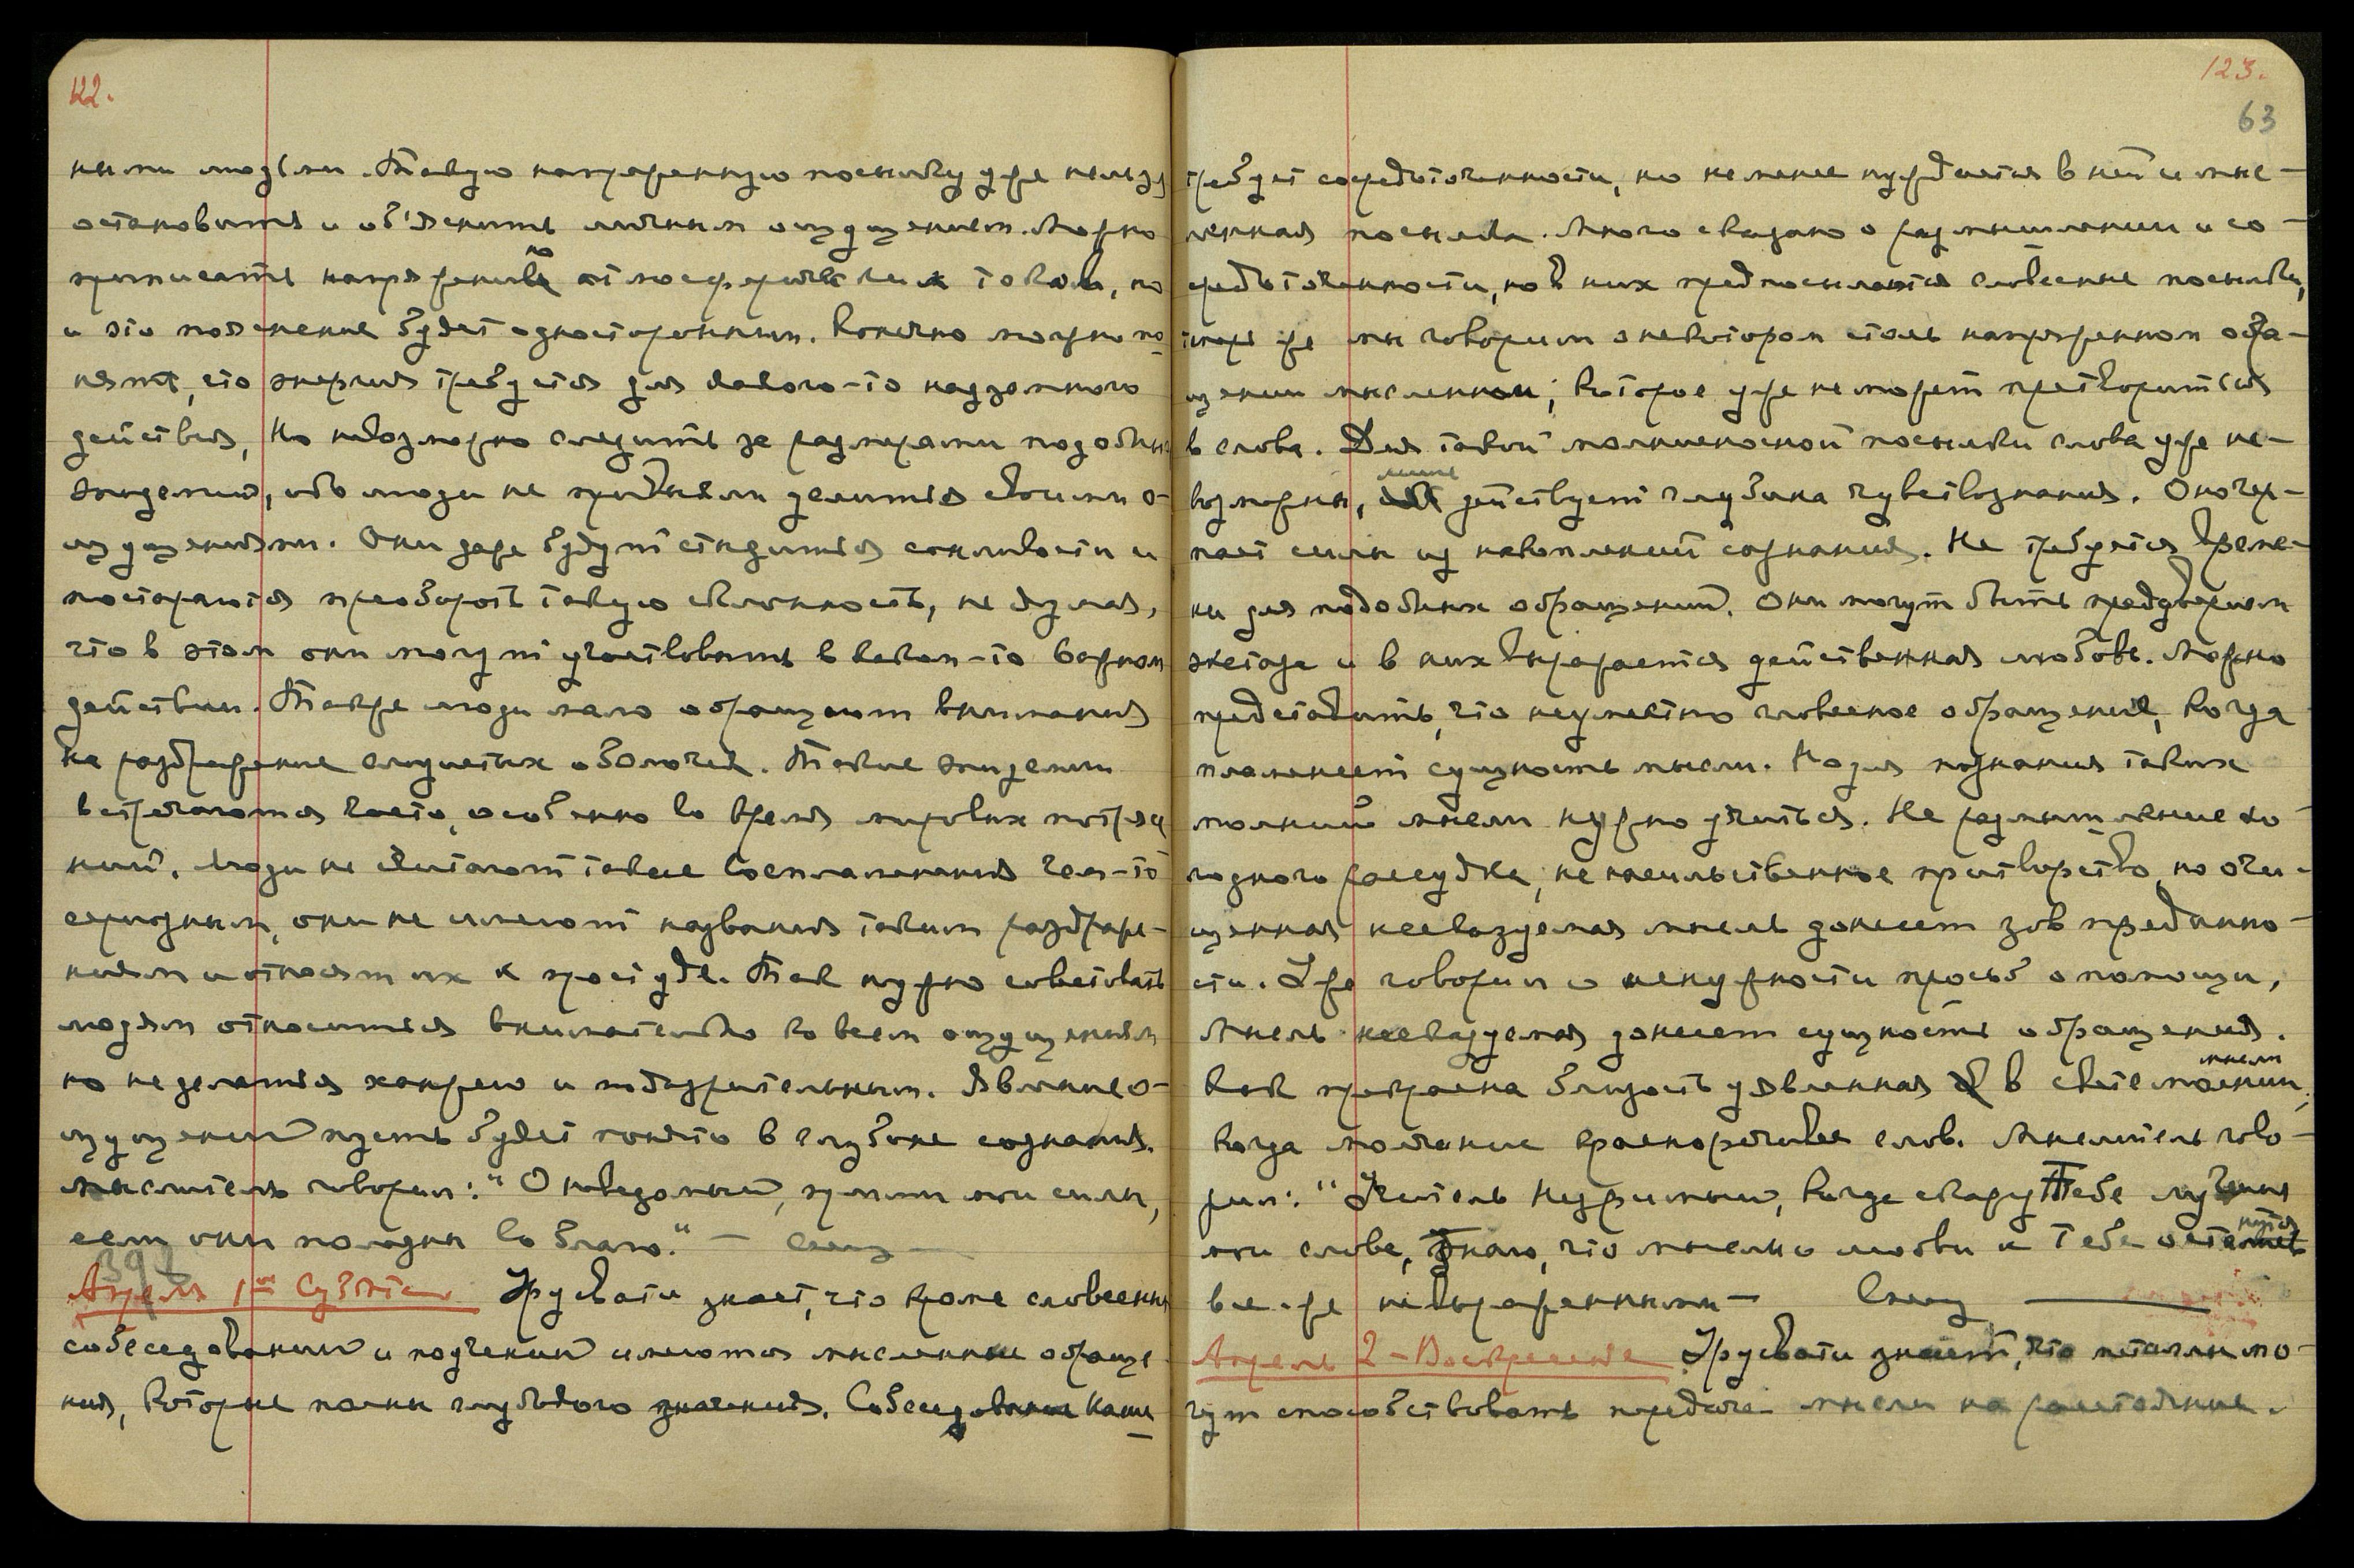 122.
ными людьми. Такую напряженную посылку уже нельзя
остановить и об'яснить личным ощущением. Можно
приписать напряжению атмосферических токов, но
и это пояснение будет односторонним. Конечно можно по
нять, что энергия требуется для какого-то надземного
действия, Но невозможно следить за размерами подобных
эпидемий, ибо люди не привыкли делиться своими о-
щущениями. Они даже будут стыдиться сонливости и
постараются преоборот такую склонность, не думая,
что в этом они могут участвовать в каком-то важном
действии. Также люди мало обращают внимания
на раздражение слизистых оболочек. Такие эпидемии
встречаются часто, особенно во время мировых потрясе
ний. Люди не считают такие воспламенения чем-то
серьозным, они не имеют названия таким раздраже-
ниям и относят их к простуде. Так нужно советовать
людям относиться внимательно ко всем ощущениям
но не делаться ханжею и подозрительным. Явление о-
щущений пусть будет понято в глубине сознания.
Мыслитель говорил: "О неведомый, прими мои силы,
если они полезны во благо." —
392
Апреля 1ое Суббота Урусвати знает, что кроме словесных
собеседований и поучений имеются мысленные обраще
ния, которые полны глубокого значения. Собеседование Наше
123.
63
требует сосредоточенности, но не менее нуждается в ней и мыс-
ленная посылка. Много сказано о размышлении и со-
средоточенности, но в них предпосылаются словесные посылки,
теперь же мы говорим о некотором столь напряженном обра-
щении мысленном; которое уже не может претвориться
в слова. Для такой молниеносной посылки слова уже не-
возможны, лишь действует глубина чувствознания. Оно чер-
пает силы из накоплений сознания. Не требуется време-
ни для подобных обращений. Они могут быть преддверием
экстаза и в них выражается действенная любовь. Можно
представить, что неуместно словесное обращение, когда
пламенеет сущность мысли. Но для познания таких
молний мысли нужно учиться. Не размышление хо-
лодного рассудка, не насильственное притворство, но очи-
щенная несказуемая мысль донесет зов преданно-
сти. Уже говорил о ненужности просьб о помощи,
Мысль несказуемая донесет сущность обращения.
Как прекрасна близость уявленная в свете молнии мысли,
когда молчание красноречивее слов. Мыслитель гово-
рил: "Учитель Незримый, когда скажу Тебе лучшие
мои слова, Знаю, что мысли о любви к Тебе останутся
все-же невыраженными —
Апрель 2 – Воскресенье Урусвати знает, что металлы мо-
гут способствовать передаче мысли на расстояние.